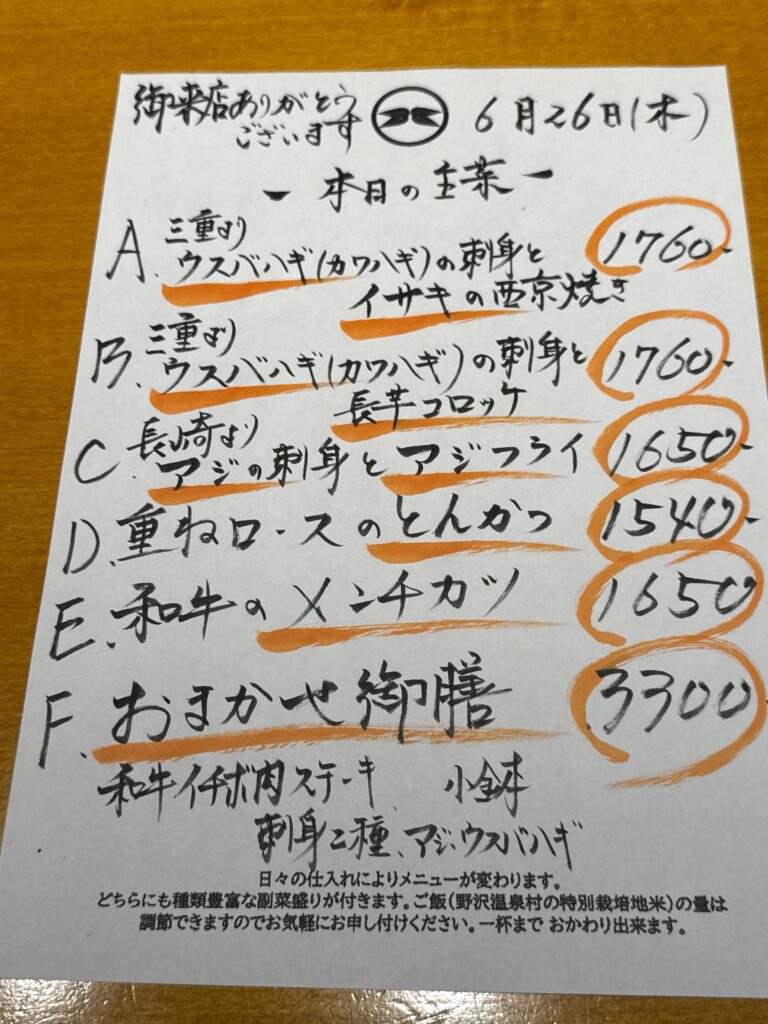 御来店ありがとう
ございます
6月26日(木)
ー本日の主菜ー
A. 三重より
ウスバハギ(カワハギ)の刺身と
イサキの西京焼き
1760-
B. 三重より
ウスバハギ(カワハギ)の刺身と
長芋コロッケ
1760-
C. 長崎より
アジの刺身とアジフライ
1650-
D. 重ねロースのとんかつ
1540-
E. 和牛のメンチカツ
1650
F. おまかせ御膳
3300
和牛イチボ肉ステーキ、小鉢
刺身二種、アジ、ウスバハギ
日々の仕入れによりメニューが変わります。
どちらにも種類豊富な副菜盛りが付きます。ご飯(野沢温泉村の特別栽培地米)の量は
調節できますのでお気軽にお申し付けください。一杯まで おかわり出来ます。